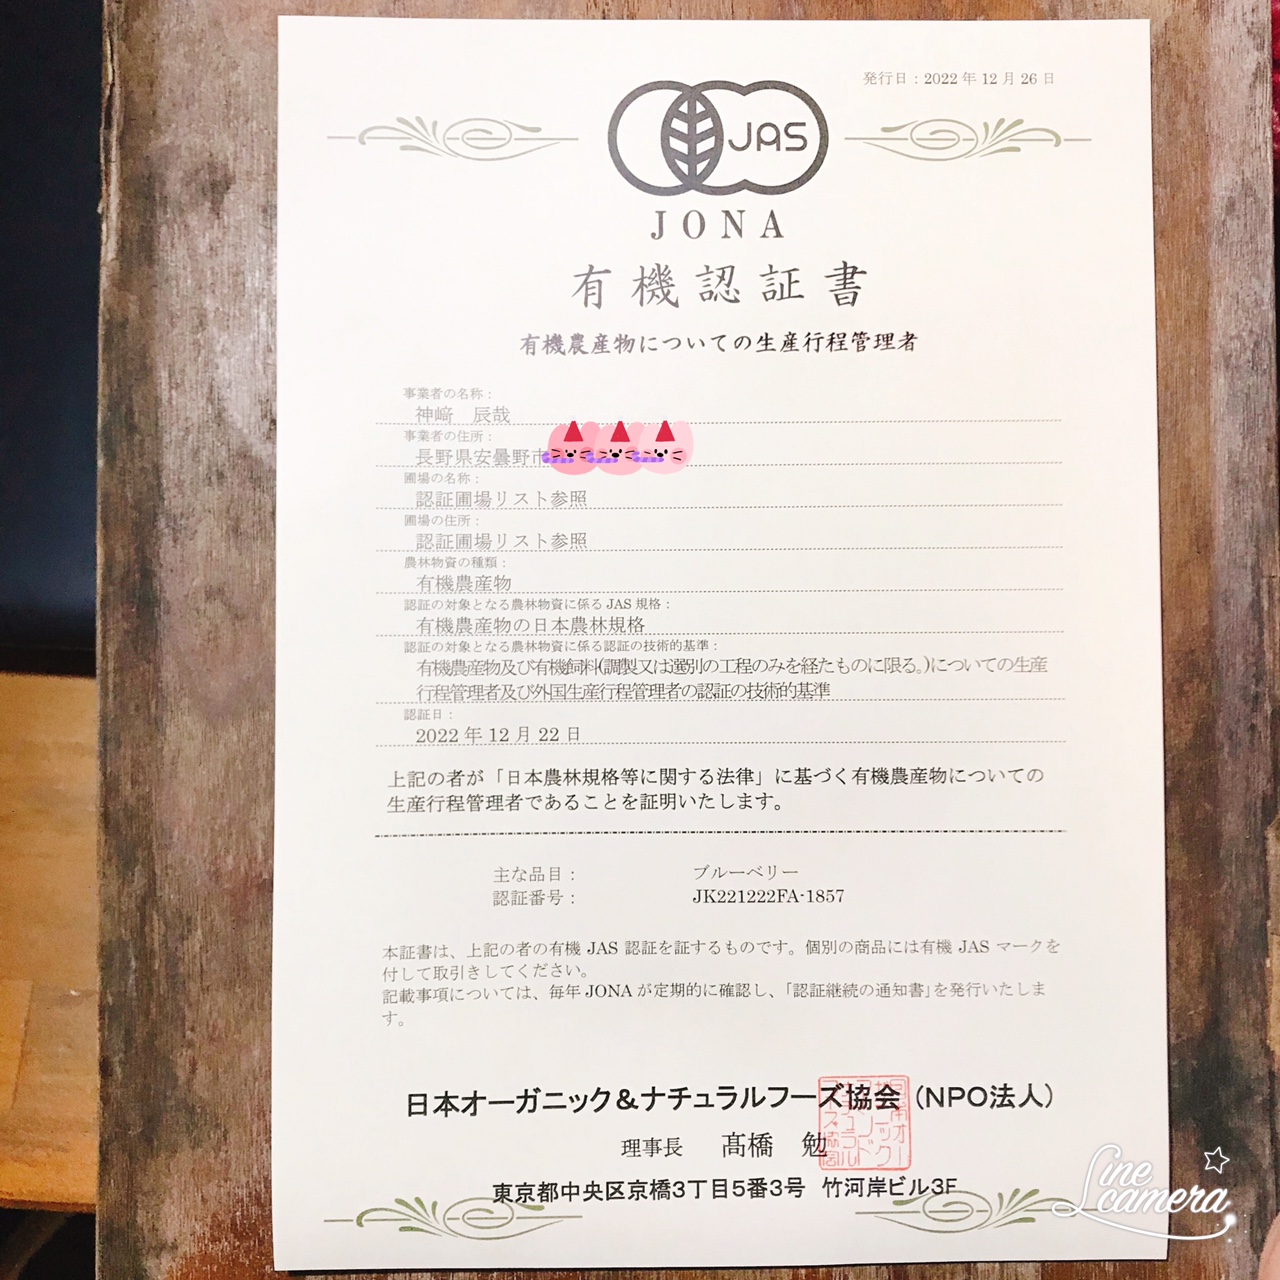 発行日：2022 年 12 月 26 日
JAS
JONA
有機認証書
有機農産物についての生産行程管理者
事業者の名称：
神﨑　辰哉
事業者の住所：
長野県安曇野市
圃場の名称：
認証圃場リスト参照
圃場の住所：
認証圃場リスト参照
農林物資の種類：
有機農産物
認証の対象となる農林物資に係る JAS 規格：
有機農産物の日本農林規格
認証の対象となる農林物資に係る認証の技術的基準：
有機農産物及び有機飼料(調製又は選別の工程のみを経たものに限る。)についての生産
行程管理者及び外国生産行程管理者の認証の技術的基準
認証日：
2022 年 12 月 22 日
上記の者が「日本農林規格等に関する法律」に基づく有機農産物についての
生産行程管理者であることを証明いたします。
主な品目：　ブルーベリー
認証番号：　JK221222FA-1857
本証書は、上記の者の有機 JAS 認証を証するものです。個別の商品には有機 JAS マークを
付して取引きしてください。
記載事項については、毎年 JONA が定期的に確認し、「認証継続の通知書」を発行いたしま
す。
日本オーガニック＆ナチュラルフーズ協会 (NPO法人)
理事長　髙橋　勉
東京都中央区京橋3丁目5番3号　竹河岸ビル3F
Line camera